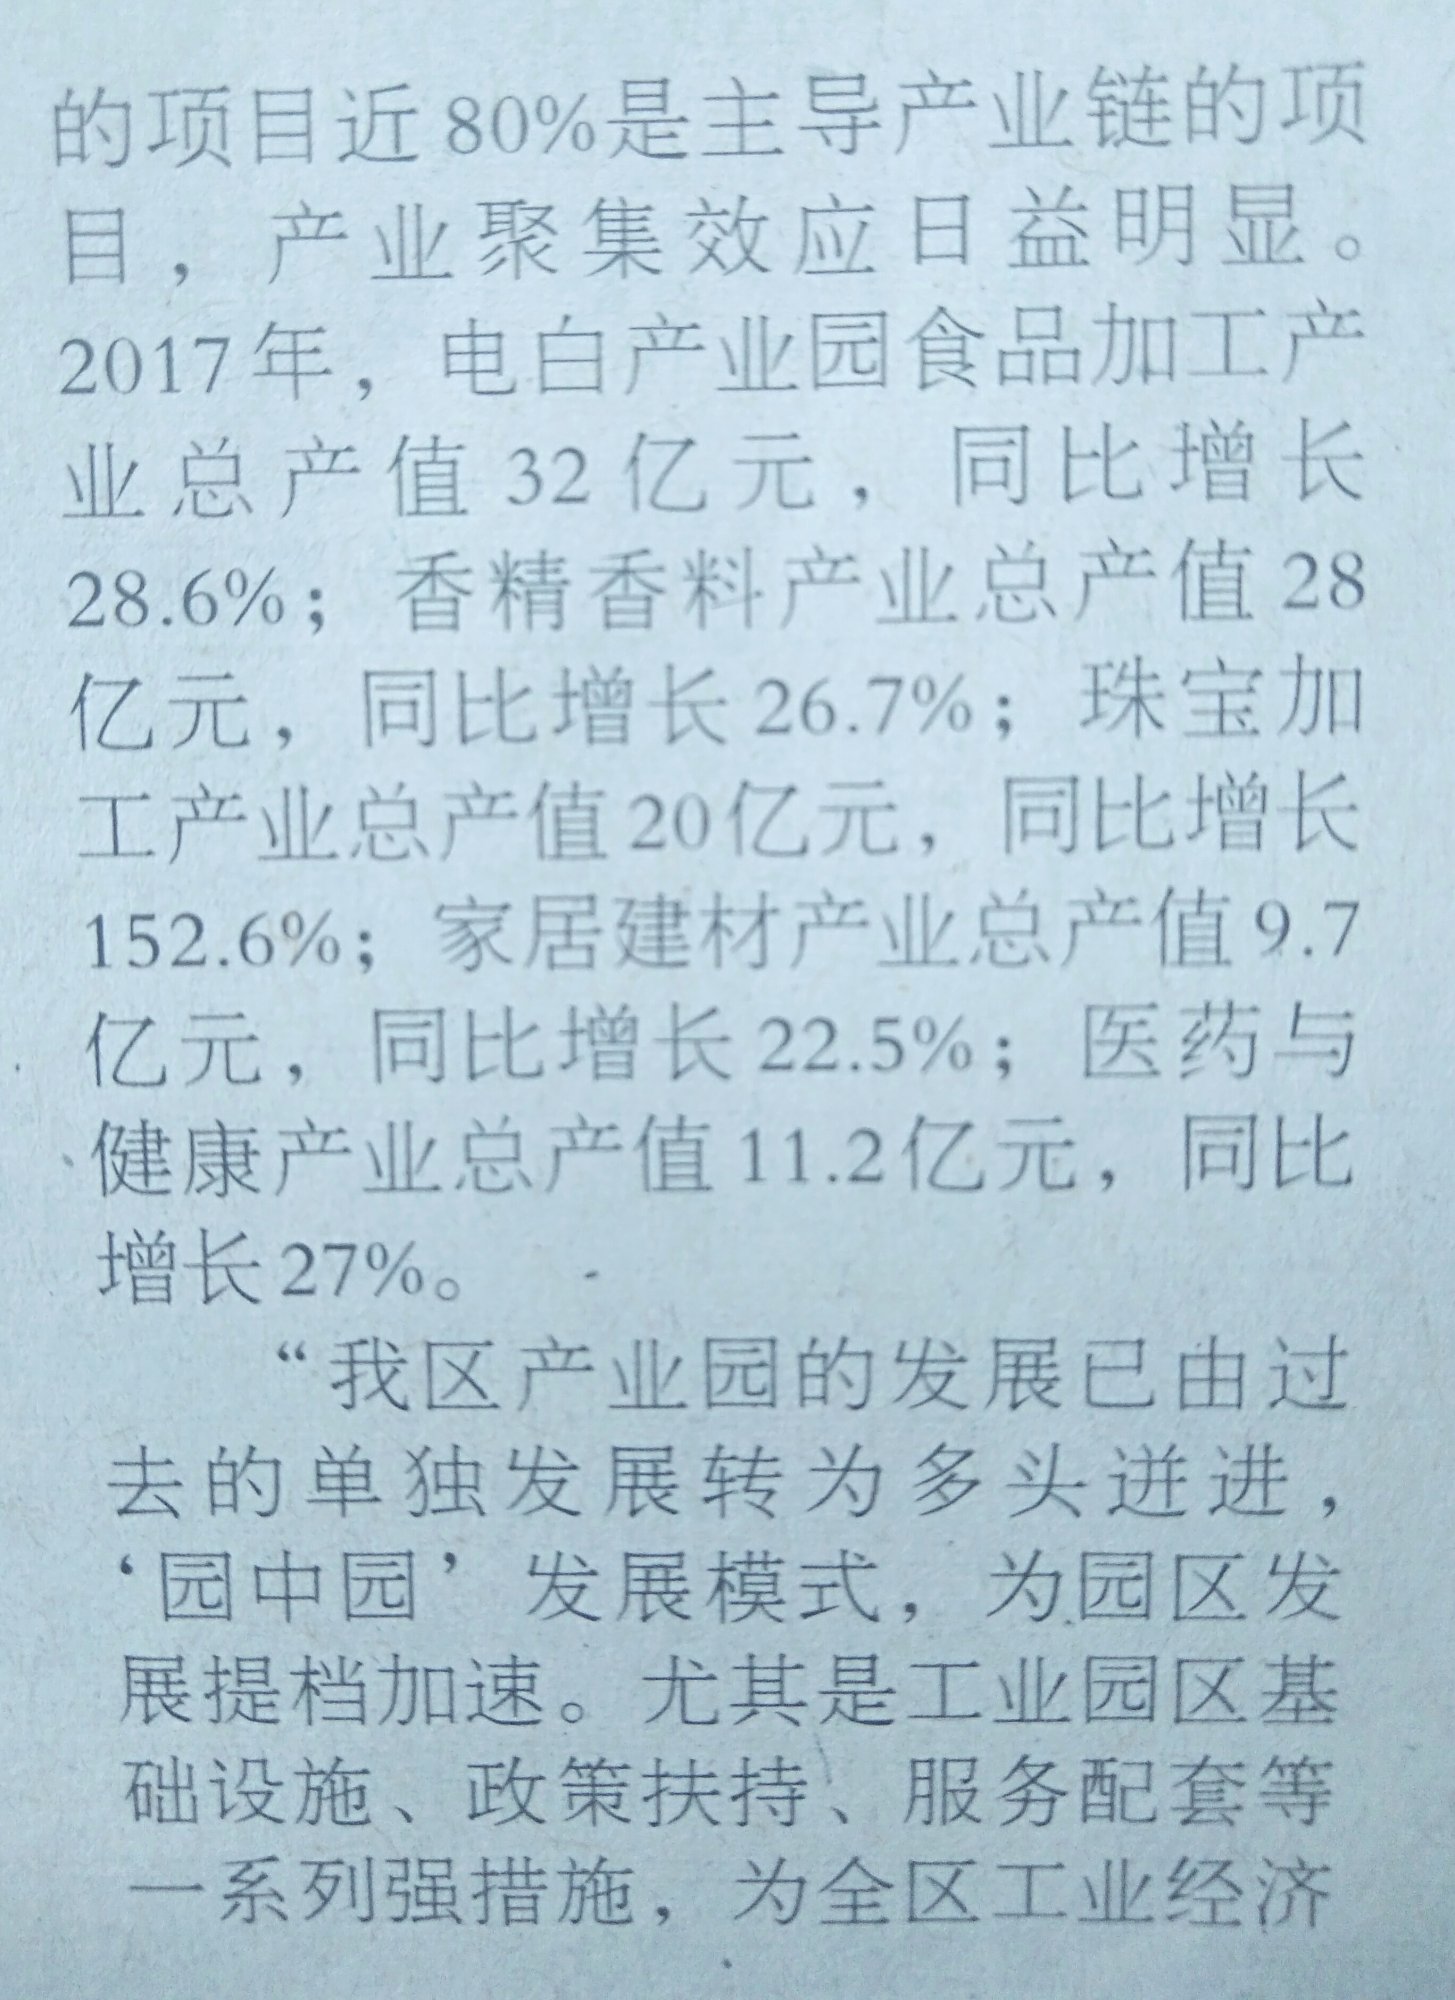 的项目近80%是主导产业链的项
目，产业聚集效应日益明显。
2017年，电白产业园食品加工产
业总产值32亿元，同比增长
28.6%；香精香料产业总产值28
亿元，同比增长26.7%；珠宝加
工产业总产值20亿元，同比增长
152.6%；家居建材产业总产值9.7
亿元，同比增长22.5%；医药与
健康产业总产值11.2亿元，同比
增长27%。
“我区产业园的发展已由过
去的单独发展转为多头迸进，
‘园中园’发展模式，为园区发
展提档加速。尤其是工业园区基
础设施、政策扶持、服务配套等
一系列强措施，为全区工业经济